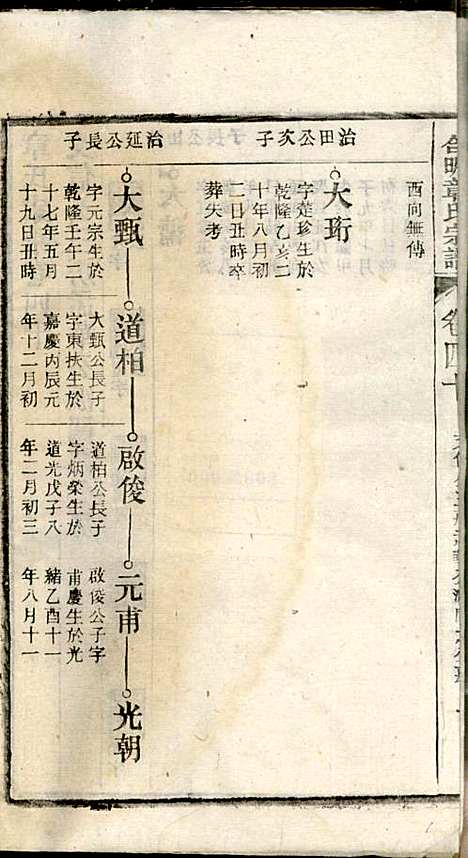 章氏宗譜
卷四十
西向無傳
治田公次子
大珩
字楚珍生於
乾隆乙亥二
十年八月初
二日丑時卒
葬失考
治延公長子
大甄
字元宗生於
乾隆壬午二
十七年五月
十九日丑時
道柏
大甄公長子
字東扶生於
嘉慶丙辰元
年十二月初
啟俊
道柏公長子
字炳榮生於
道光戊子八
年二月初三
元甫
啟俊公子字
甫慶生於光
緒乙酉十一
年八月十一
光朝